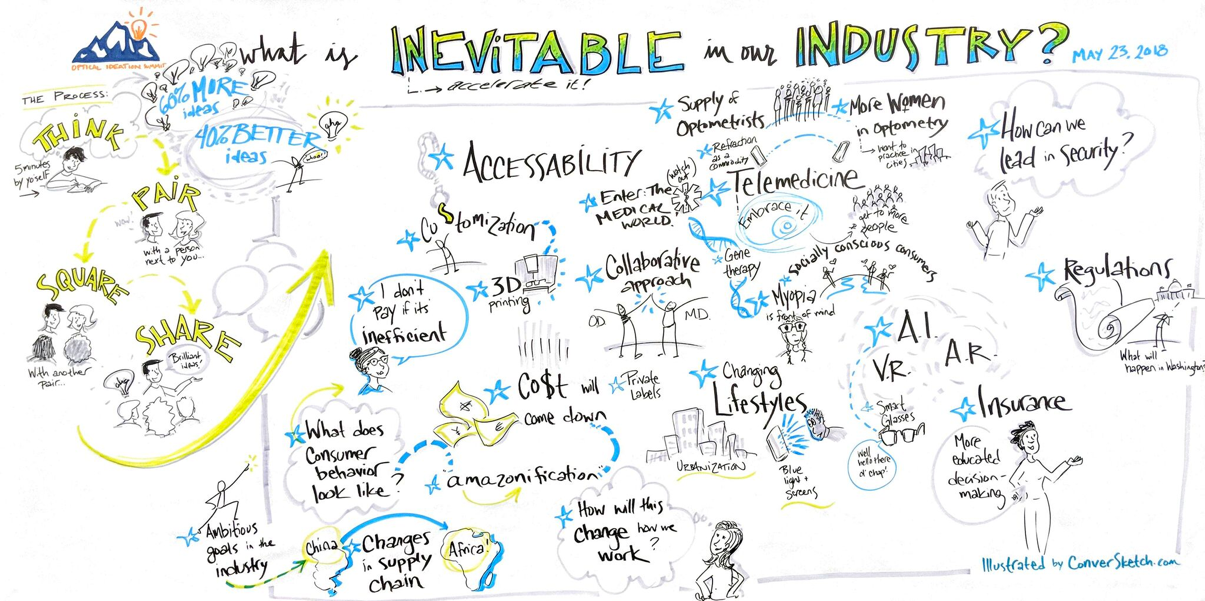 OPTICAL IDEATION SUMMIT
what is INEVITABLE in our INDUSTRY?
MAY 23, 2018
→ accelerate it!
THE PROCESS:
THINK
5 minutes
by yoself
60% MORE
ideas
40% BETTER
ideas
aha!
PAIR
with a person
next to you...
SQUARE
With another
pair...
SHARE
Brilliant
ideas!
Ambitious
goals in the
industry
ACCESSABILITY
Co$tomization
3D
printing
I don't
pay if it's
inefficient
What does
consumer
behavior
look like?
Co$t will
come down
amazonification
China
Changes
in supply
chain
Africa!
Supply of
Optometrists
More Women
in Optometry
→ hard to
practice in
cities
Refraction
as a
commodity
Enter: The
MEDICAL
WORLD.
(watch
out)
Telemedicine
Embrace it
get to more
people
Gene
therapy
Socially conscious consumers
Collaborative
approach
OD
M.D.
Myopia
is front of mind
Private
Labels
Changing
Lifestyles
URBANIZATION
Blue
light +
screens
How will this
change how we
work?
A.I.
V.R.
A.R.
Smart
Glasses
Well
hello there
ol' chap!
How can we
lead in security?
Regulations
What will
happen in Washington?
Insurance
More
educated
decision-
making
Illustrated by ConverSketch.com